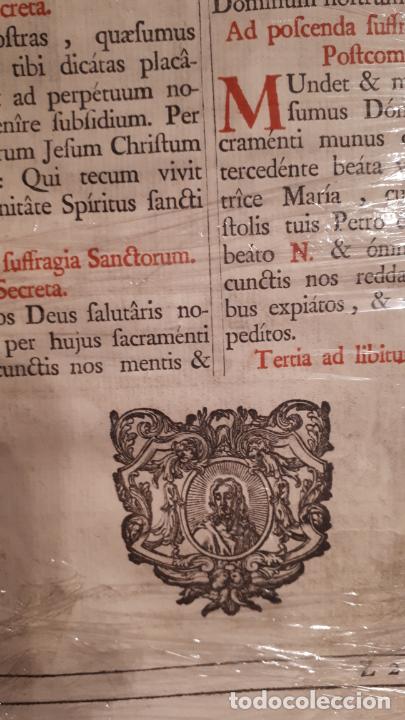 Secreta.
nostras , quæsumus
tibi dicátas placâ-
ad perpétuum no-
enîre subsidium. Per
rum Jesum Christum
: Qui tecum vivit
nitâte Spíritus sancti
suffragia Sanctorum.
Secreta.
os Deus salutâris no-
per hujus sacraménti
cunctis nos mentis &
Dominum nostrum
Ad poscenda suffra
Postcom
MUndet & m
sumus Dóm
craménti munus
tercedénte beáta
trîce María , cu
stolis tuis Petro
beáto N. & ómn
cunctis nos redda
bus expiátos, &
pedítos.
Tertia ad libitu
Z 2
todocoleccion